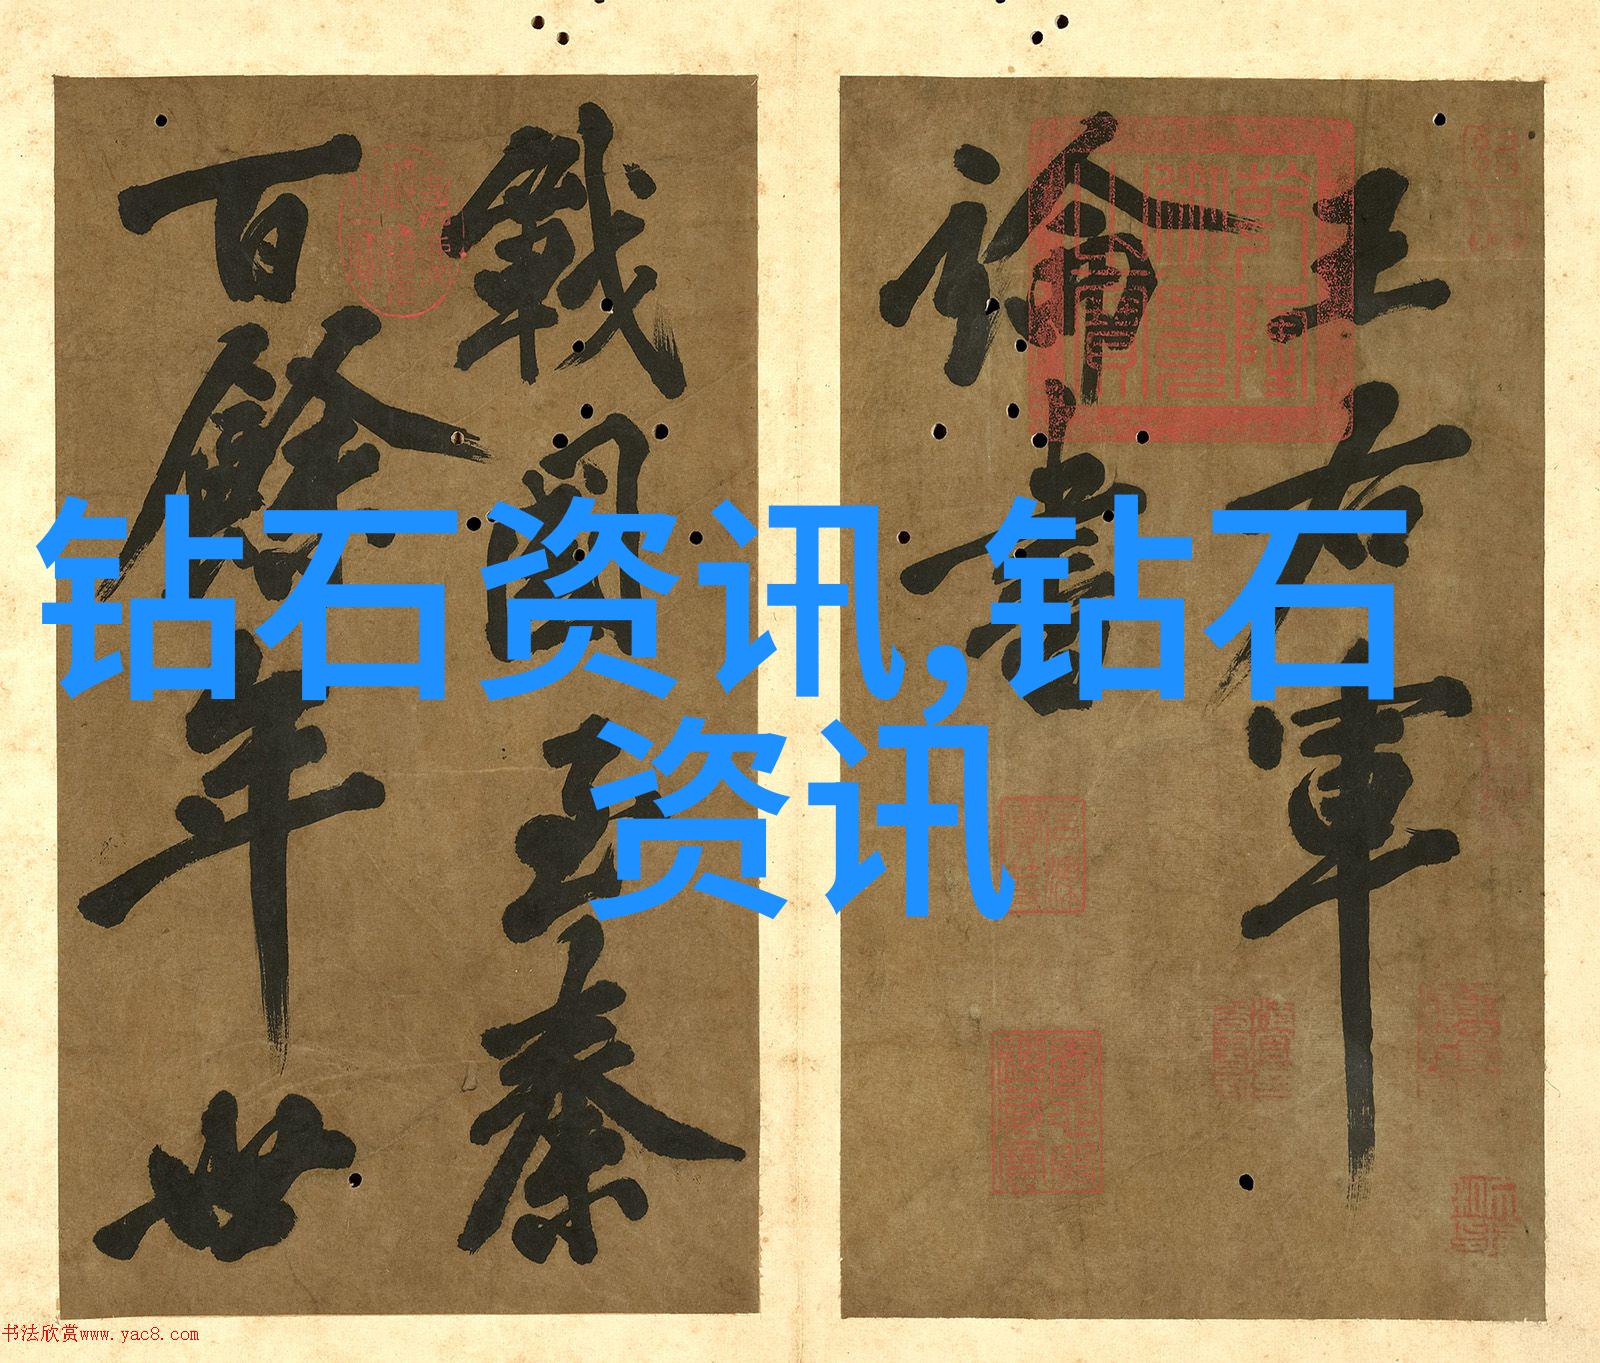 王右軍
論書
戰國至秦
百餘年世
乾隆御覽之寶
钻石资讯,钻石
资讯
书法欣赏www.yac8.com